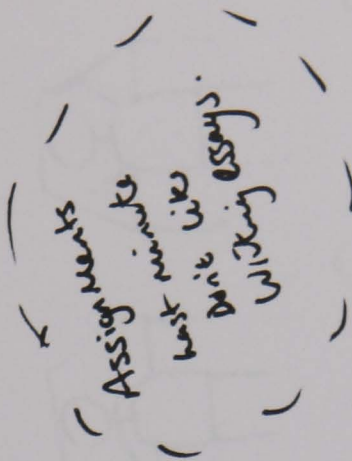 Assignments
last minute
Don't like
writing essays.